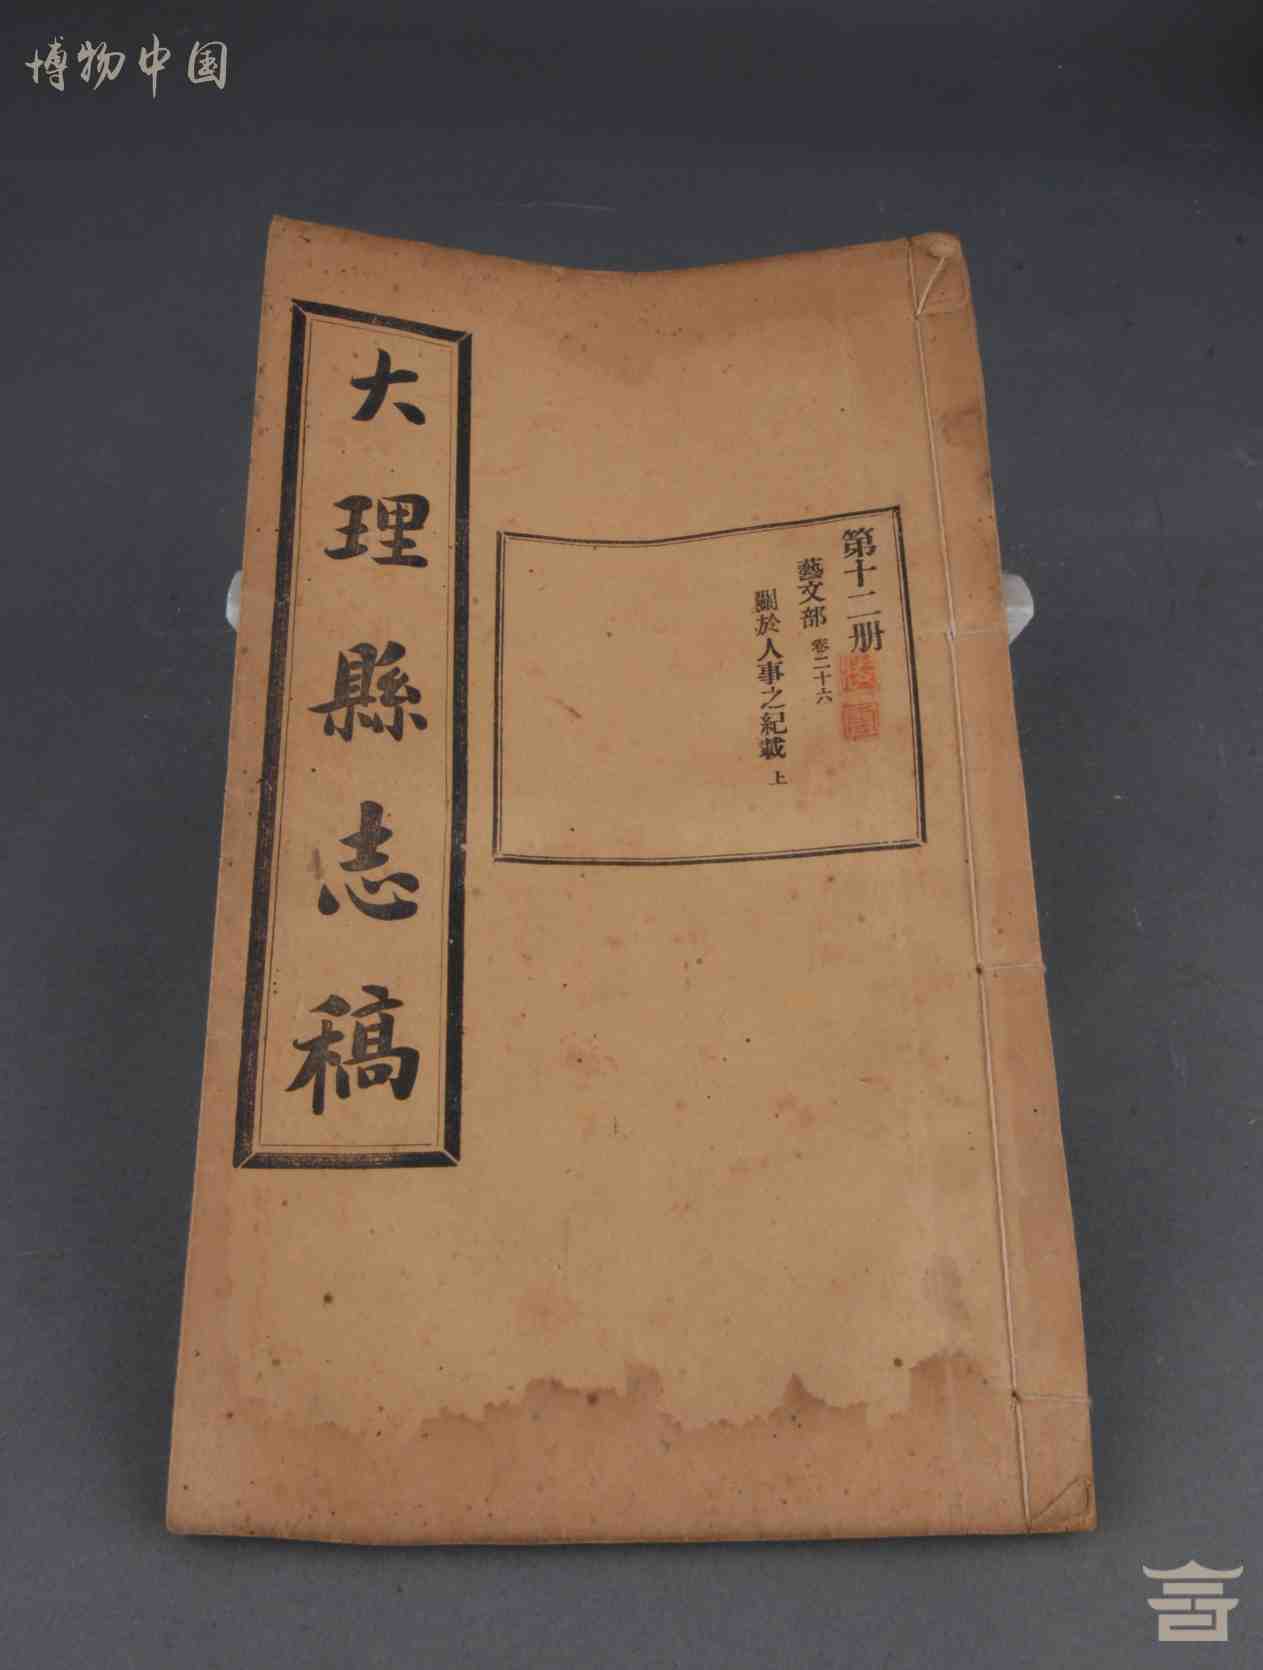 博物中国
大理縣志稿
第十二册
藝文部 卷二十六
關於人事之紀載 上